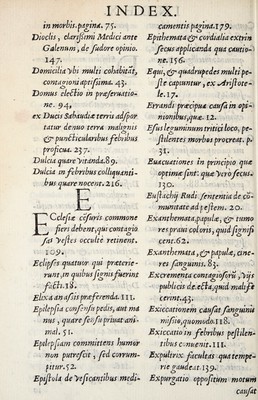 INDEX.
in morbis. pagina. 75.
Dioclis, clarissimi Medici ante
Galenum, de sudore opinio.
147.
Domicilia vbi multi cohabitāt,
contagioni aptissima. 43.
Domus electio in præseruatio-
ne. 94.
ex Ducis Sabaudiæ terris
datur denuo terra malignis
& puncticularibus febribus
proficua. 237.
Dulcia quare vitanda. 89.
Dulcia in febribus colliquanti-
bus quare nocent. 216.
E
Ecclesiæ commone
fieri debent, qui contagio
sas vestes occultè retinent.
109.
Eclipses quatuor quæ præterie-
runt, in quibus signis fuerint
factæ. 18.
Elixa an assis præferenda. 111.
Epilepsia consensu pedis, aut ma
nus, quare sensu priuat ani-
mal. 51.
Epilepsiam committens humor
non putrescit, sed corrum-
pitur. 52.
Epistola de vesicantibus medi-
camentis pagina. 179.
Epithemata & cordialia extrin
secus applicanda qua cautio-
ne. 156.
Equi, & quadrupedes multi pe-
ste capiuntur, ex Aristote-
le. 17.
Errandi præcipua causa in opi-
nionibus, quæ. 12.
Esus leguminum tritici loco, pe-
stilentes morbos procreat. p.
31.
Euacuationes in principio quæ
optimæ sint: quæ verò secus.
130.
Eustachij Rudi sententia de cō-
munitate ad pestem. 20.
Exanthemata, papulæ, & tumo
res praui coloris, quid signifi
cent. 62.
Exanthemata, & papulæ, cine-
res sanguinis. 83.
Excrementa contagiosorū, vijs
publicis eiecta, quid mali fe-
cerint. 43.
Exiccationem causat sanguinis
missio, quomodo. 118.
Exiccatio in febribus pestilen-
tibus cōuenit. 111.
Expultrix facultas qua tempe-
rie gaudeat. 139.
Expurgatio oppositum motum
causat